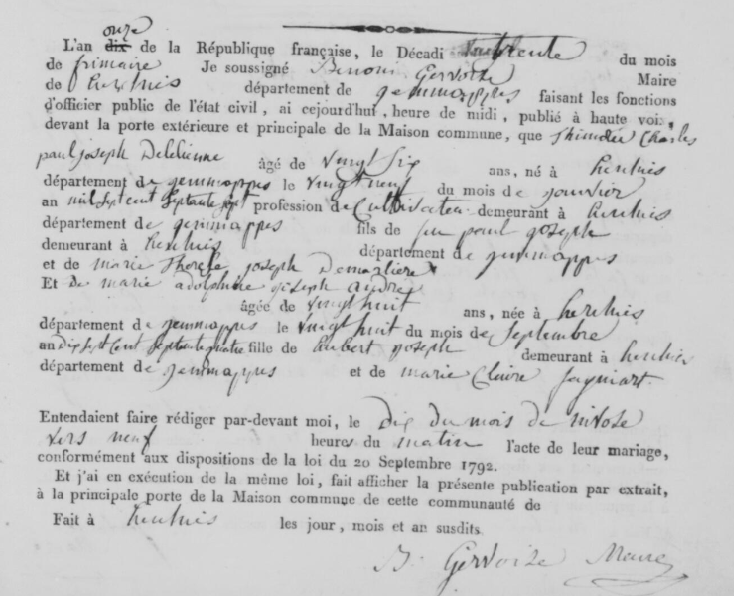 onze
L'an dix de la République française, le Décadi trente du mois
de frimaire Je soussigné Benoni Gervoise Maire
de herchies département de gemmappes faisant les fonctions
d'officier public de l'état civil, ai cejourd'hui, heure de midi, publié à haute voix,
devant la porte extérieure et principale de la Maison commune, que Charles
paul joseph Delcienne âgé de vingt six ans, né à herchies
département de gemmappes le vingt neuf du mois de janvier
an mil sept cent septante sept profession de Cultivateur demeurant à herchies
département de gemmappes fils de feu paul joseph
demeurant à herchies département de gemmappes
et de marie therese joseph Demarliere
Et de marie adolphine joseph andre
âgée de vingt huit ans, née à herchies
département de gemmappes le vingt huit du mois de Septembre
an dix sept cent septante quatre fille de hubert joseph demeurant à herchies
département de gemmappes et de marie Claire
Entendaient faire rédiger par-devant moi, le dix du mois de nivose
vers neuf heures du matin l'acte de leur mariage,
conformément aux dispositions de la loi du 20 Septembre 1792.
Et j'ai en exécution de la même loi, fait afficher la présente publication par extrait,
à la principale porte de la Maison commune de cette communauté de
Fait à herchies les jour, mois et an susdits
B. Gervoise Maire